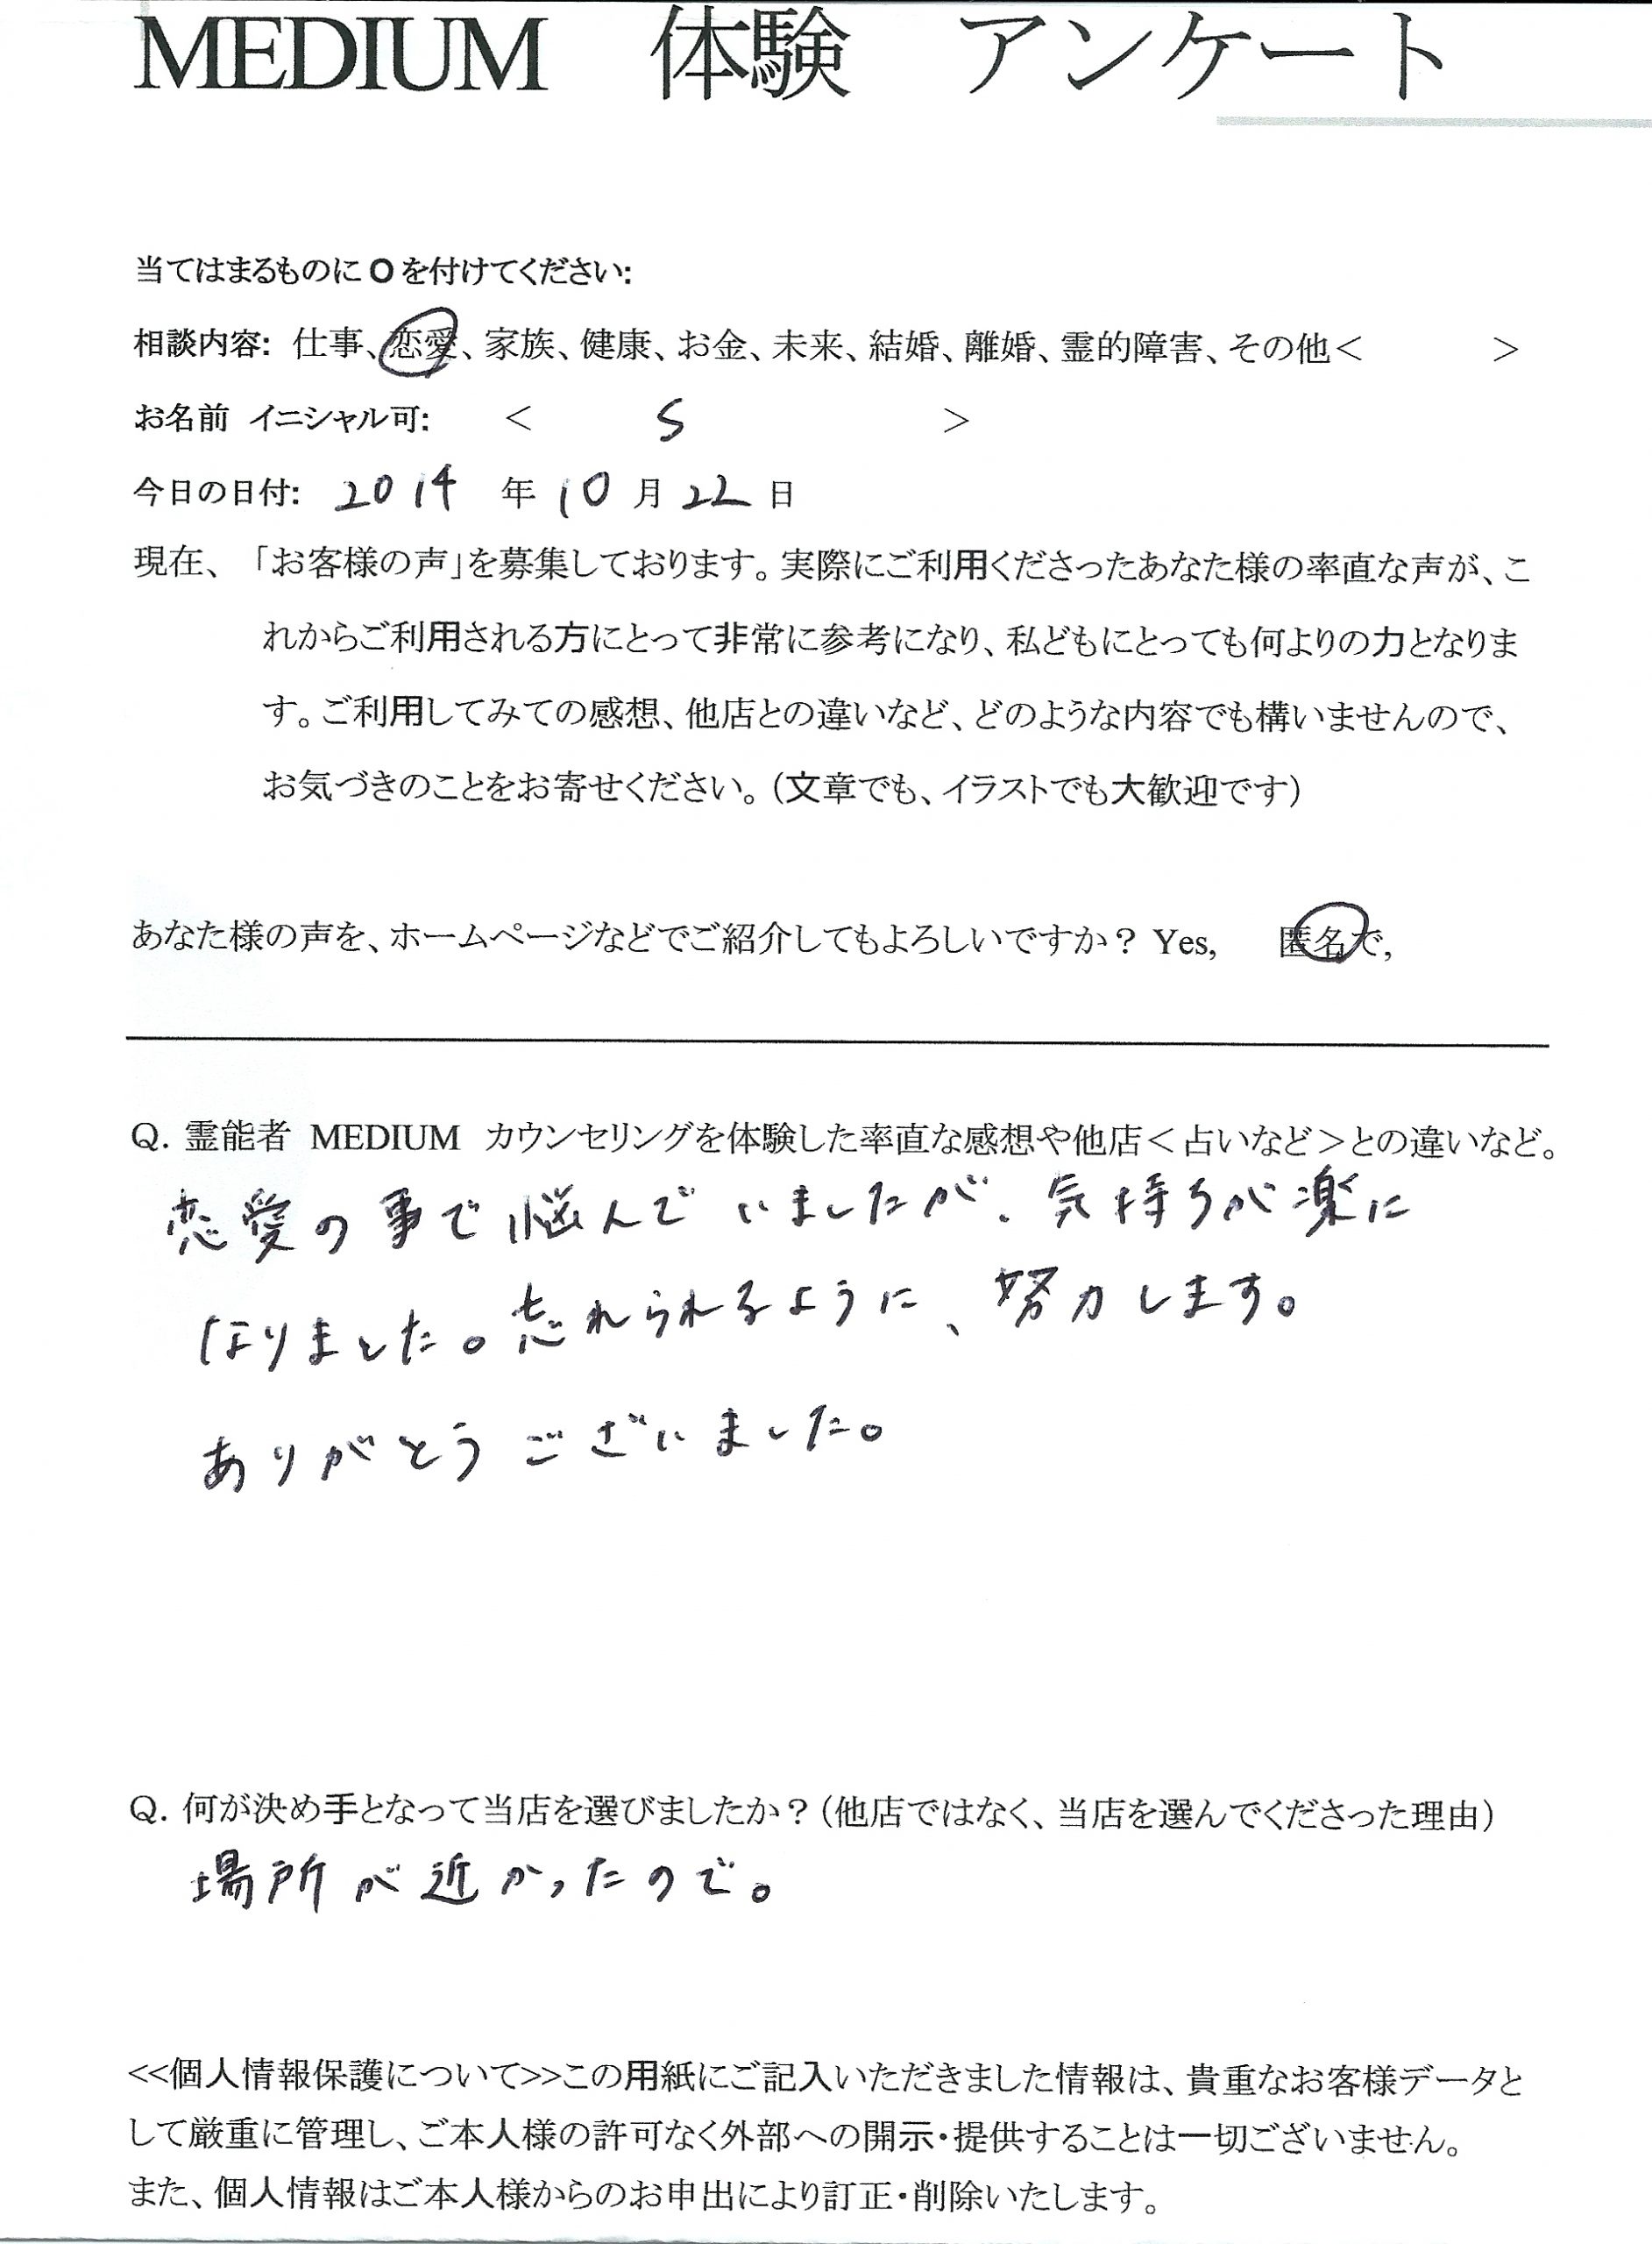 MEDIUM 体験 アンケート
当てはまるものにOを付けてください:
相談内容: 仕事、恋愛、家族、健康、お金、未来、結婚、離婚、霊的障害、その他＜ ＞
お名前 イニシャル可: ＜ S ＞
今日の日付: 2014 年 10 月 22 日
現在、「お客様の声」を募集しております。実際にご利用くださったあなた様の率直な声が、こ
れからご利用される方にとって非常に参考になり、私どもにとっても何よりの力となりま
す。ご利用してみての感想、他店との違いなど、どのような内容でも構いませんので、
お気づきのことをお寄せください。（文章でも、イラストでも大歓迎です）
あなた様の声を、ホームページなどでご紹介してもよろしいですか？ Yes, 匿名で,
Q. 霊能者 MEDIUM カウンセリングを体験した率直な感想や他店＜占いなど＞との違いなど。
恋愛の事で悩んでいましたが、気持ちが楽に
なりました。忘れられるように、努力します。
ありがとうございました。
Q. 何が決め手となって当店を選びましたか？（他店ではなく、当店を選んでくださった理由）
場所が近かったので。
<<個人情報保護について>>この用紙にご記入いただきました情報は、貴重なお客様データと
して厳重に管理し、ご本人様の許可なく外部への開示・提供することは一切ございません。
また、個人情報はご本人様からのお申出により訂正・削除いたします。